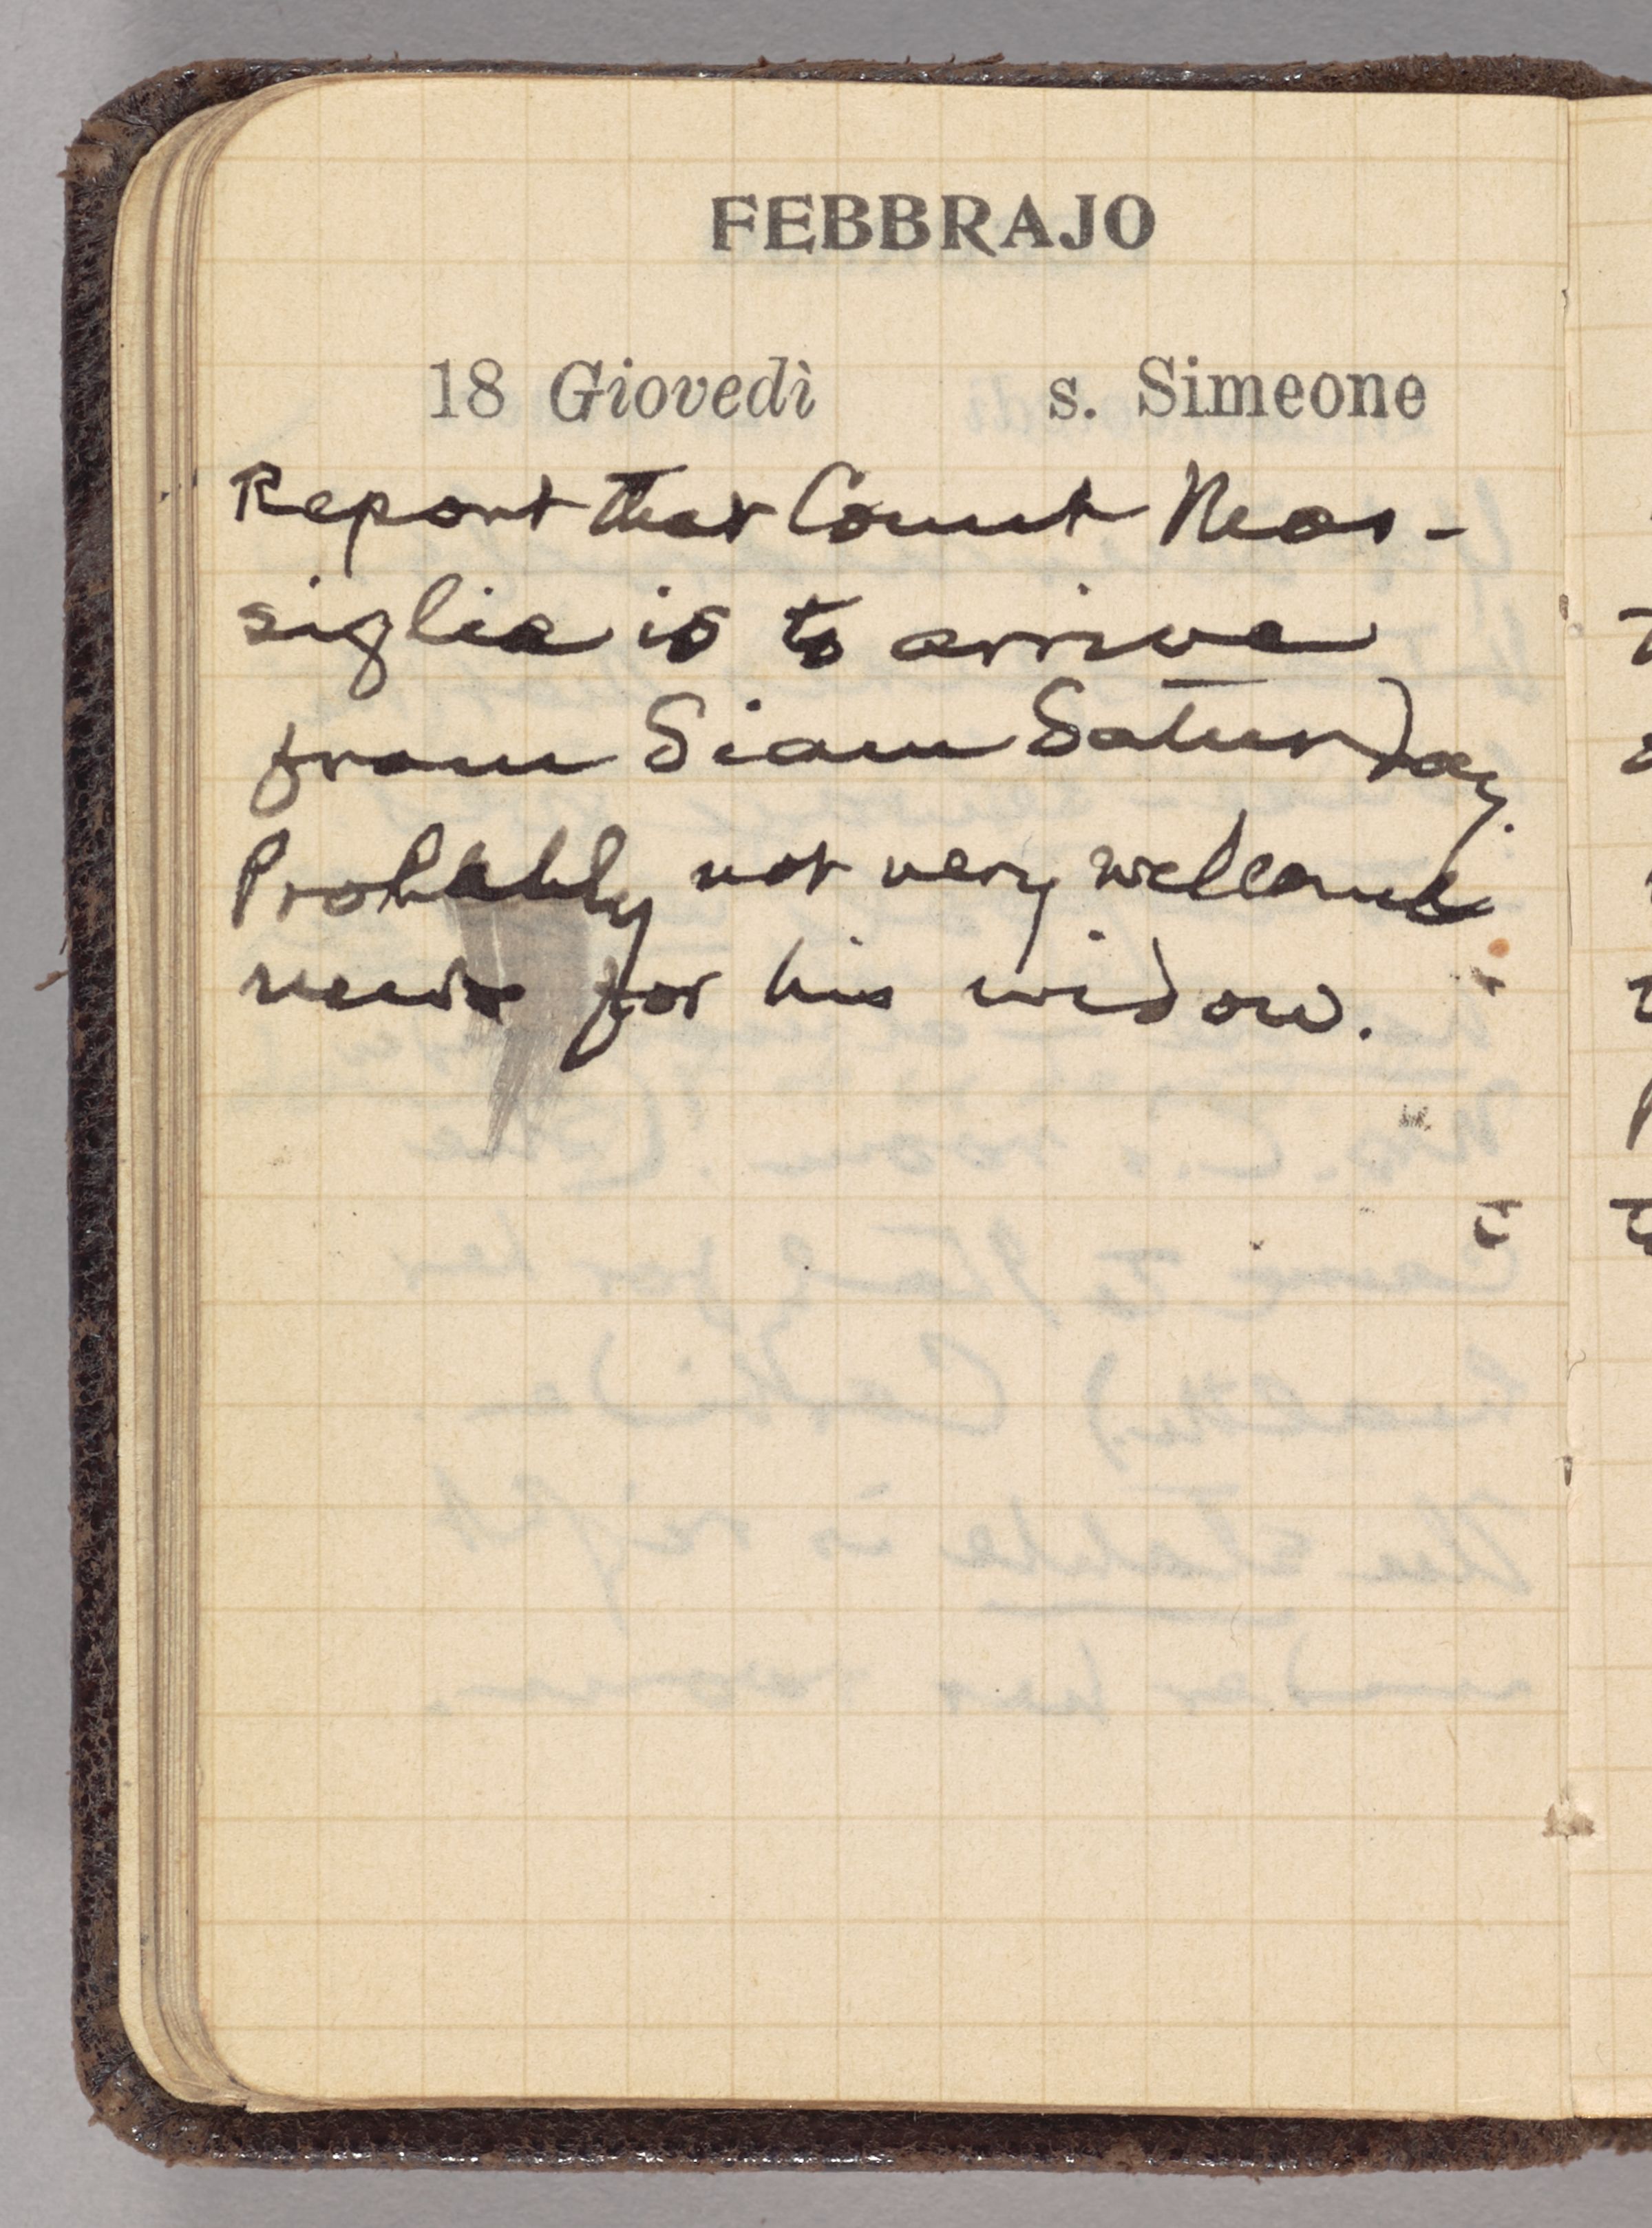 FEBBRAJO
18 Giovedì s. Simeone
Report that Count Mas-
siglia is to arrive
from Siam Saturday.
Probably not very welcome
news for his widow.